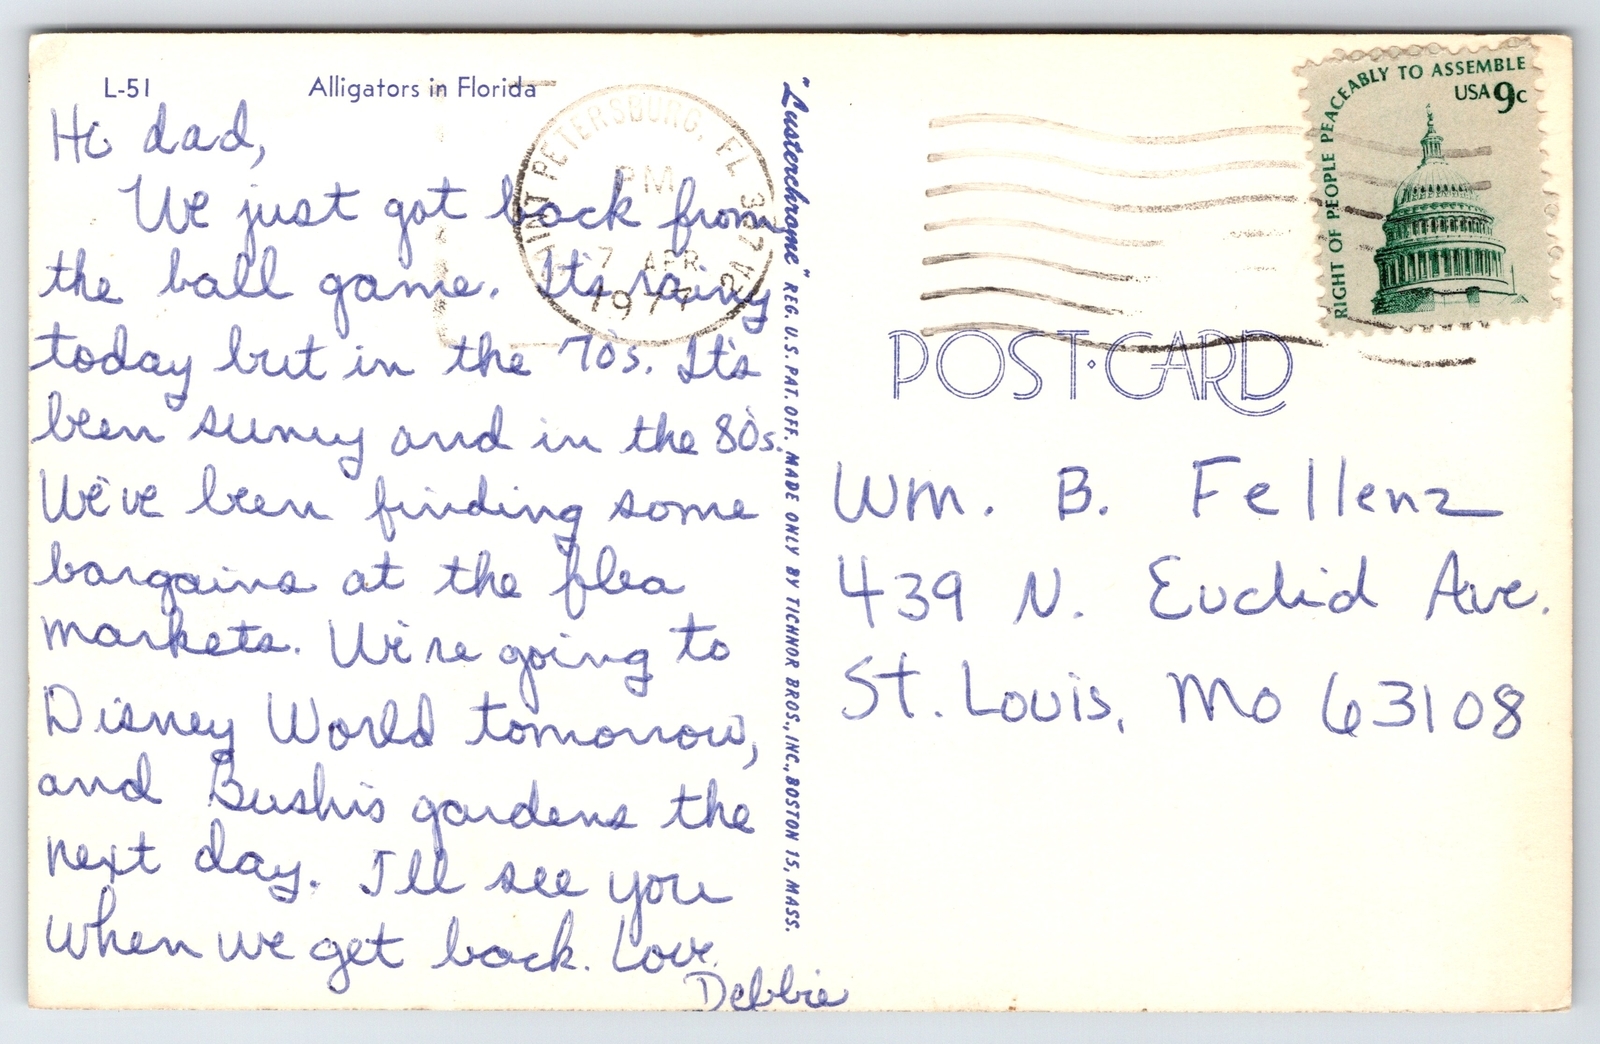 L-51 Alligators in Florida
Hi dad,
We just got back from
the ball game. It's rainy
today but in the 70's. It's
been sunny and in the 80's.
We've been finding some
bargains at the flea
markets. We're going to
Disney World tomorrow,
and Bush's gardens the
next day. I'll see you
when we get back. Love
Debbie
SAINT PETERSBURG, FL 337
PM
7 APR
1977
"Lusterchrome" REG. U.S. PAT. OFF. MADE ONLY BY TICHNOR BROS., INC., BOSTON 15, MASS.
RIGHT OF PEOPLE PEACEABLY TO ASSEMBLE
USA 9c
POST·CARD
Wm. B. Fellenz
439 N. Euclid Ave.
St. Louis, Mo 63108